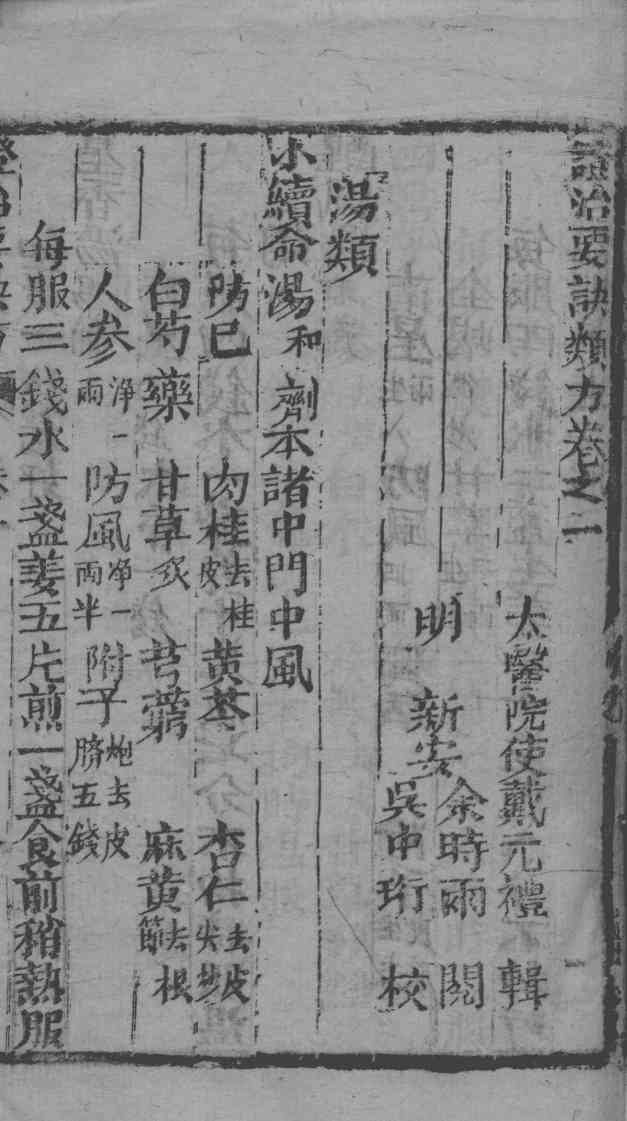 證治要訣類方卷之二
太醫院使戴元禮 輯
余時雨 閱
明 新安
吳中珩 校
湯類
小續命湯和劑本諸中門中風
防已 肉桂去桂皮 黄芩 杏仁去皮尖炒
白芍藥 甘草炙 芎藭 麻黄去根節
人参淨一兩 防風净一兩半 附子炮去皮臍五錢
每服三錢水一盞姜五片煎一盞食前稍熱服